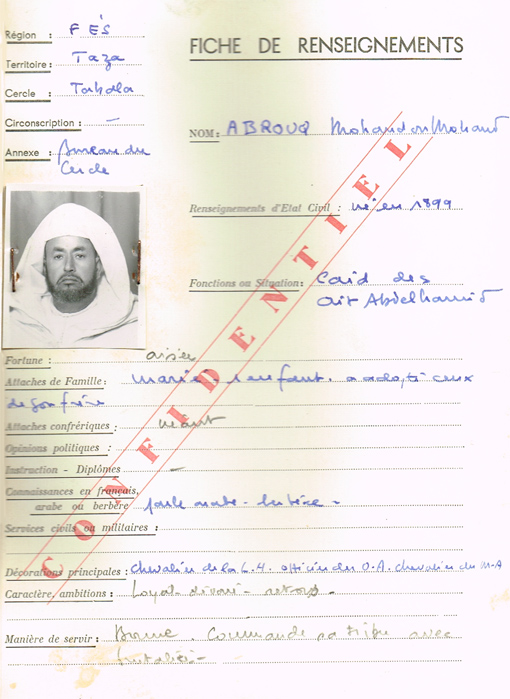 Région : FÈS
FICHE DE RENSEIGNEMENTS
Territoire : Taza
Cercle : Tahala
Circonscription : —
NOM : ABROUQ Mohand ou Mohand
Annexe : Bureau du
Cercle
Renseignements d'Etat Civil : né en 1899
Fonctions ou Situation : Caïd des
Ait Abdelhamid
CONFIDENTIEL
Fortune : aisée
Attaches de Famille : Marié - 1 enfant. a adopté ceux
de son frère
Attaches confrériques : néant
Opinions politiques :
Instruction - Diplômes —
Connaissances en français,
arabe ou berbère parle arabe - berbère -
Services civils ou militaires :
Décorations principales : Chevalier de la L.H. officier du O.A. chevalier du M.A
Caractère, ambitions : Loyal - dévoué - retors
Manière de servir : Bonne. Commande sa tribu avec